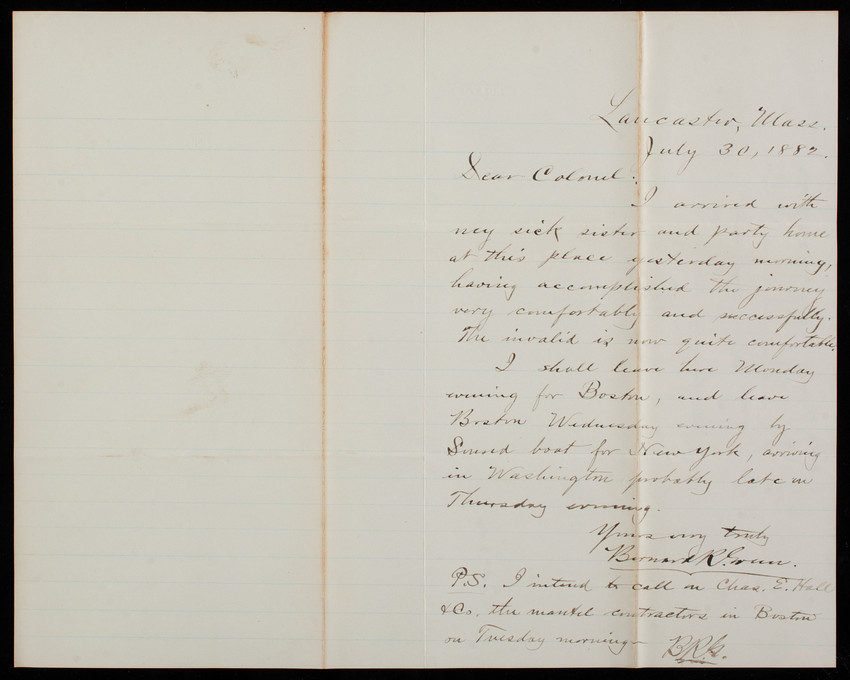 Lancaster, Mass.
July 30, 1882.
Dear Colonel:
I arrived with
my sick sister and party home
at this place yesterday morning,
having accomplished the journey
very comfortably and successfully.
The invalid is now quite comfortable.
I shall leave here Monday
evening for Boston, and leave
Boston Wednesday evening by
Sound boat for New York, arriving
in Washington probably late on
Thursday evening.
Yours very truly
Bernard R. Green.
P.S. I intend to call on Chas. E. Hall
& Co. the mantel contractors in Boston
on Tuesday morning—
B.R.G.